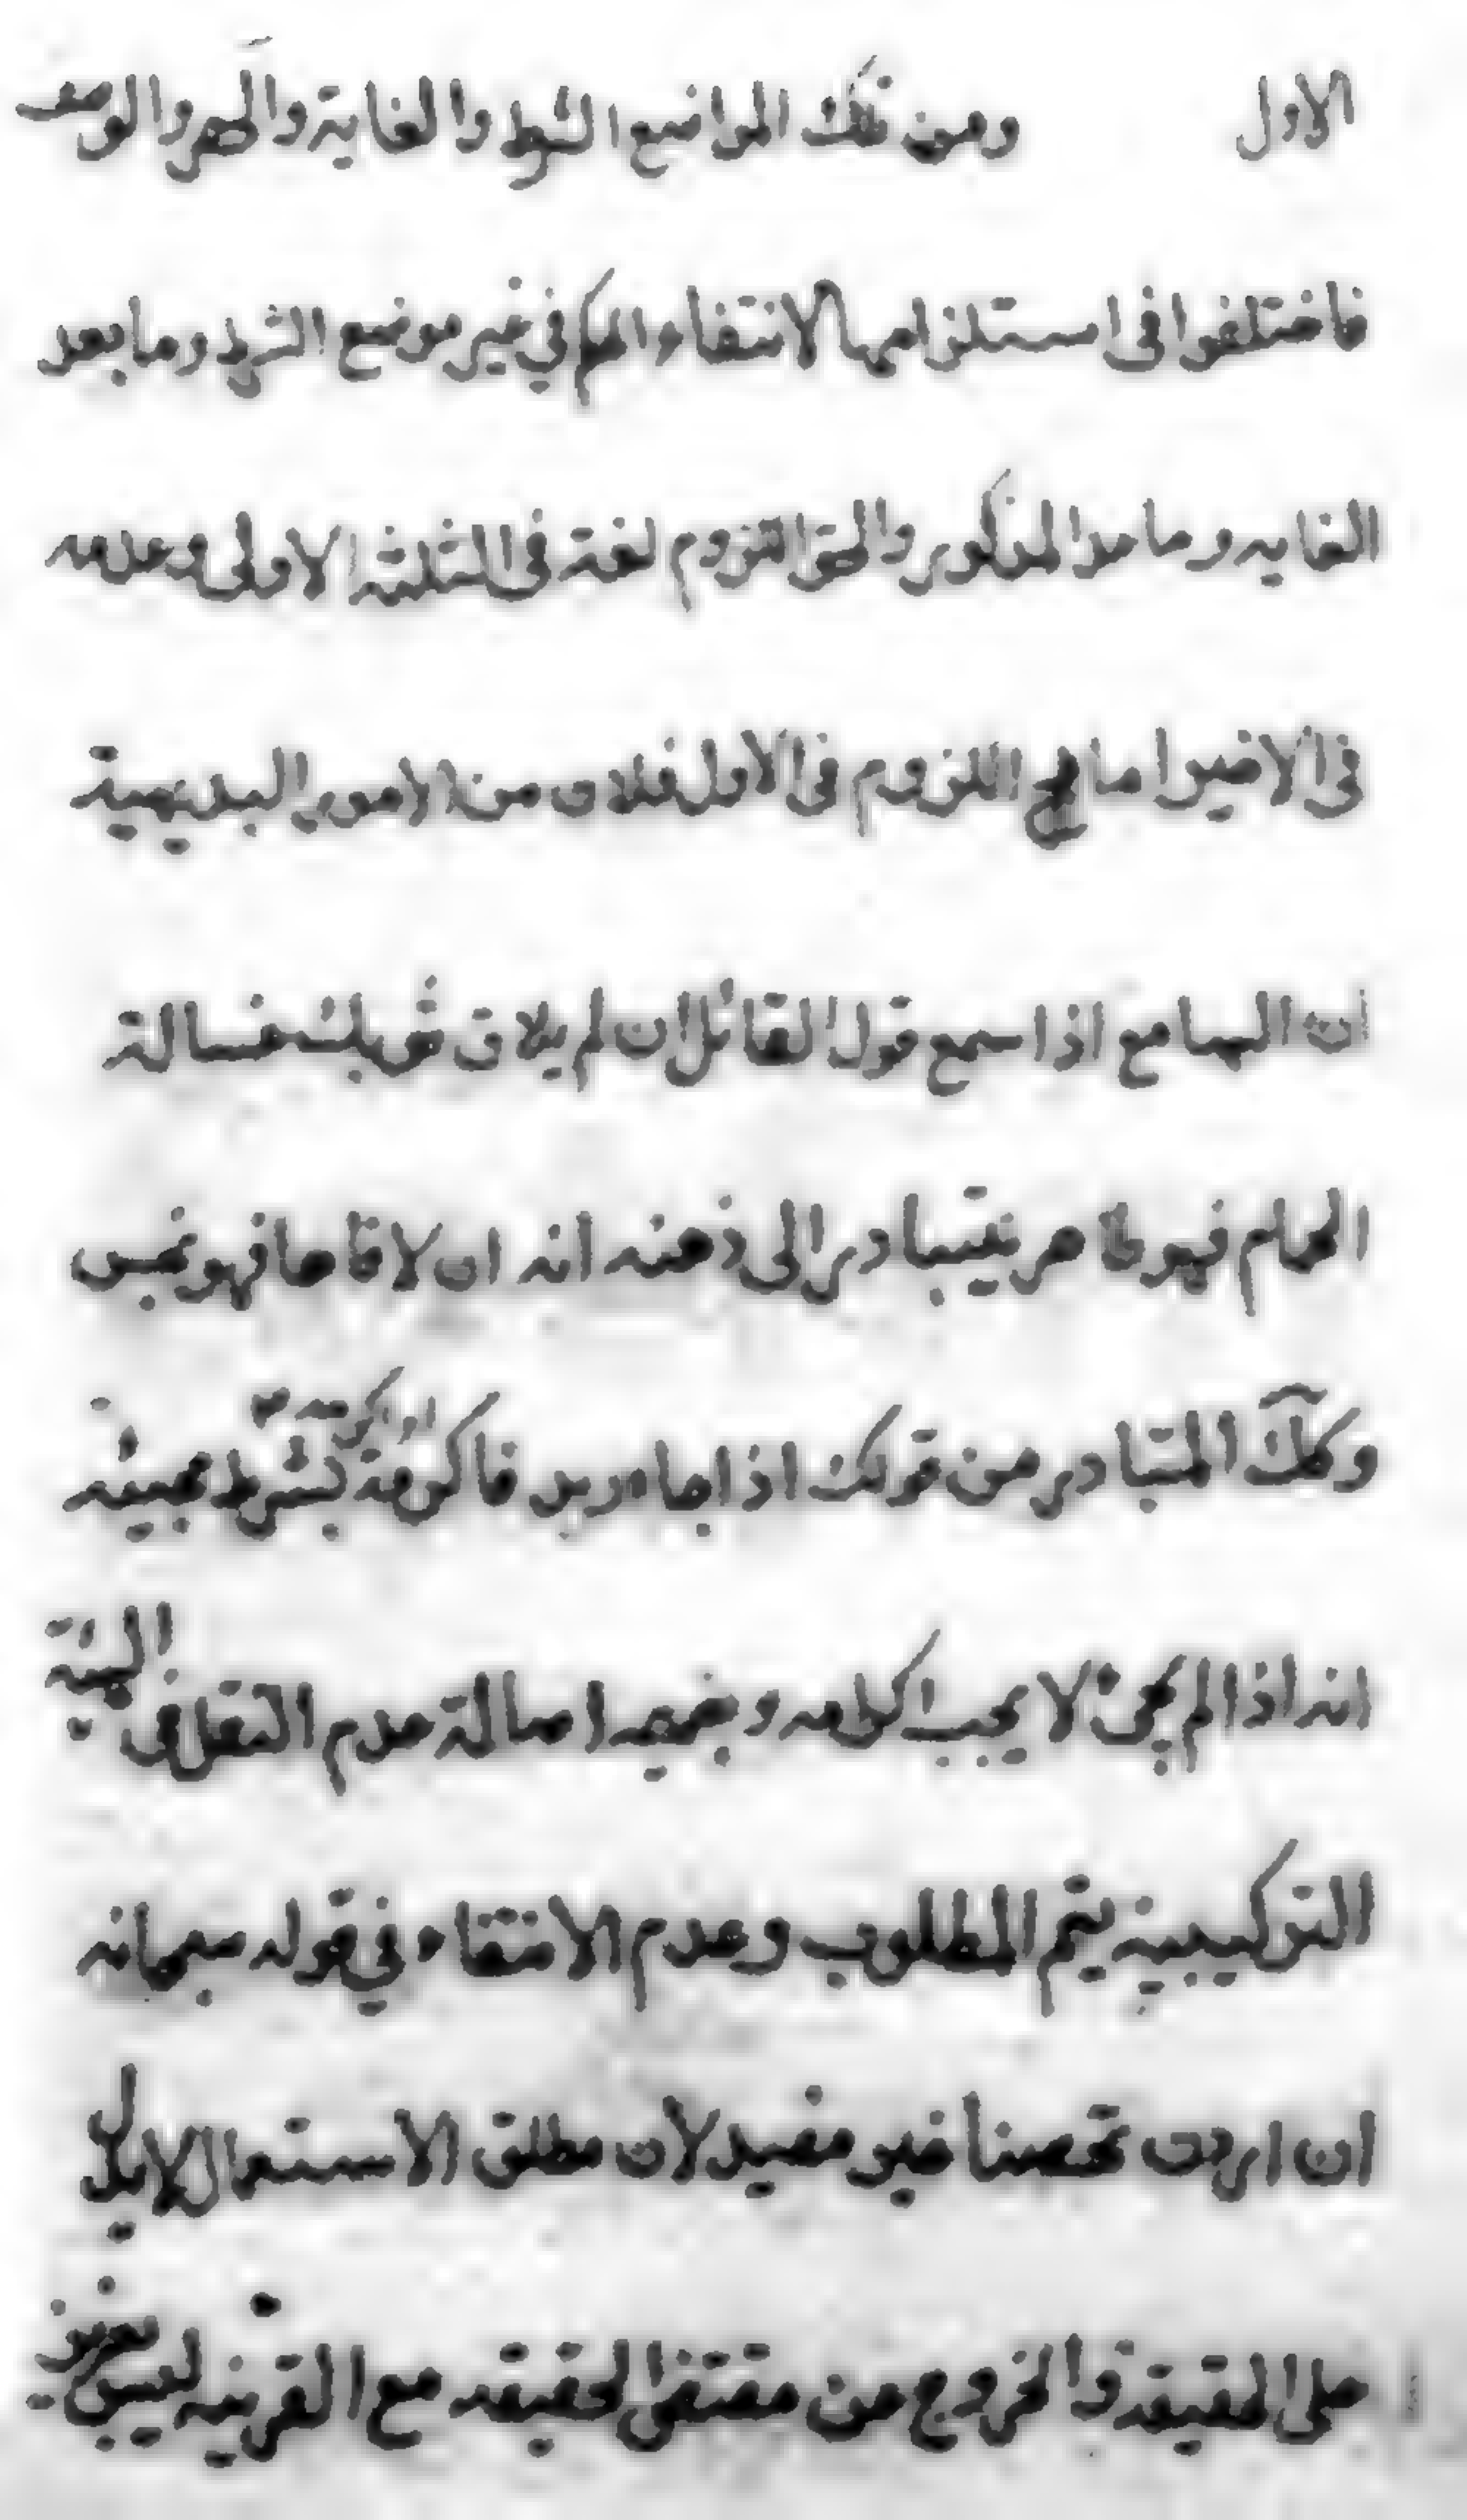 الاول ومن تلك المواضع الشرط والغاية والحصر والوصف
فاختلفوا فى استلزامها لانتفاء الحكم في غير موضع الشرط وما بعد
الغايه وما عدا المذكور والحق اللزوم لغة فى الثلثة الاولى وعدمه
فى الاخير اما اللزوم فى الاول فلان من الامور البديهية
ان السامع اذا سمع قول القائل ان لم يلاق ثوبك غسالة
الحمام فهو طاهر يتبادر الى ذهنه انه ان لاقاها فهو نجس
وكك المتبادر من قولك اذا جاء زيد فاكرمه بشرط مجيئه
انه اذا لم يجئ لا يجب اكرامه وبضميمه اصالة عدم النقل فى الهيئة
التركيبية يتم المطلوب وعدم الانتفاء في قوله سبحانه
ان اردن تحصنا غير مفيد لان مطلق الاستعمال لا يدل
على الحقيقة والخروج من مقتضى الحقيقه مع القرينه ليس بعزيز